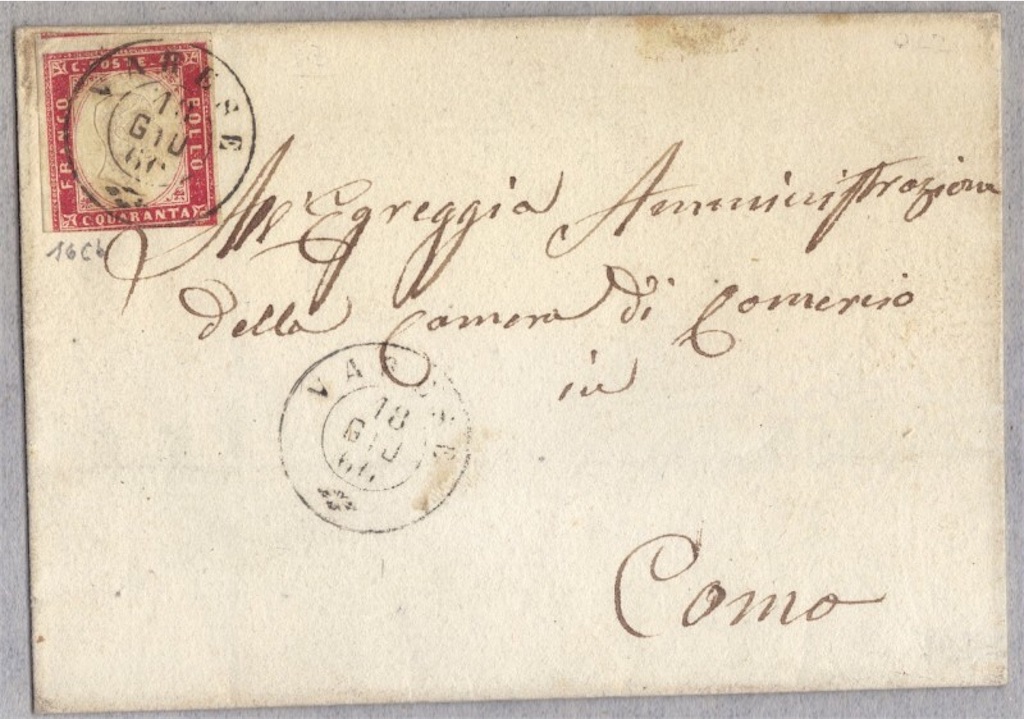 C. POSTE
FRANCO
BOLLO
C. QUARANTA
VARESE
18
GIU
66
16Cb
All'Egreggia Amministrazione
della Camera di Comercio
in
VARESE
18
GIU
66
Como